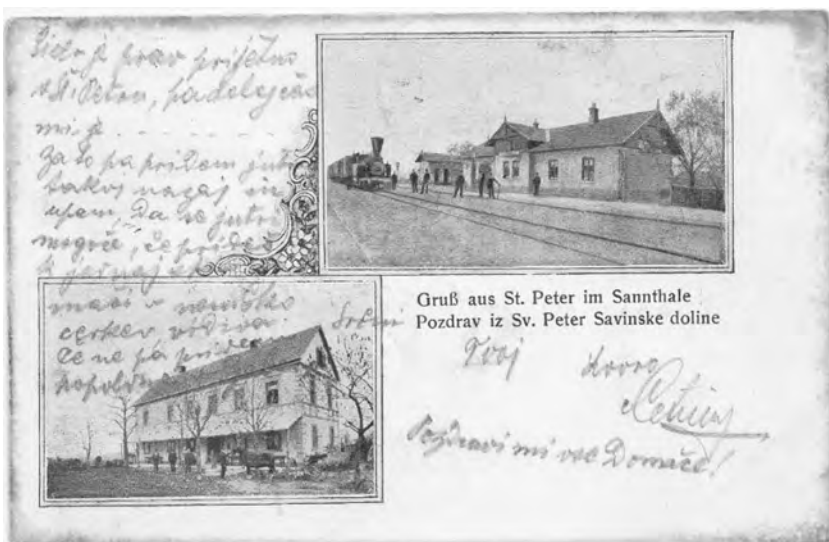 je prav prijetno
v Št. Petru, pa
mi je . . . . . .
Zato pa pridem jutri
takoj nazaj in
upam, da se jutri
mogoče, če prideš
k
maši v nemško
cerkev vidiva.
Če ne pa pridem
Srčni
Gruß aus St. Peter im Sannthale
Pozdrav iz Sv. Peter Savinske doline
Tvoj
Pozdravi mi vse Domače!